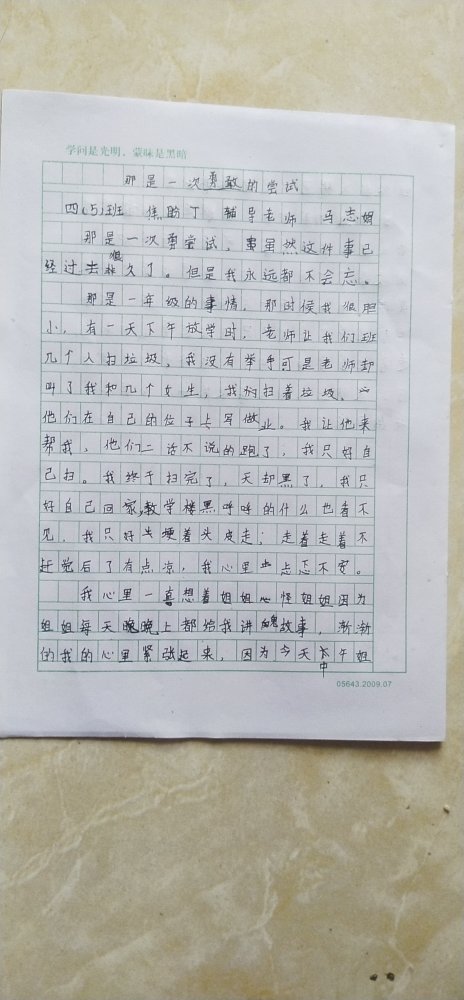 学问是光明，蒙昧是黑暗
那是一次勇敢的尝试
四(5)班 焦盼丁 辅导老师 马志娟
那是一次勇尝试，虽然这件事已
经过去很久了。但是我永远都不会忘。
那是一年级的事情，那时候我很胆
小，有一天下午放学时，老师让我们班
几个人扫垃圾，我没有举手可是老师却
叫了我和几个女生，我们扫着垃圾，
他们在自己的位子上写做业。我让他来
帮我，他们二话不说的跑了，我只好自
己扫。我终于扫完了，天却黑了，我只
好自己回家，教学楼黑呼呼的什么也看不
见，我只好硬着头皮走；走着走着不
赶觉后了有点凉，我心里忐忑不安。
我心里一直想着姐姐心怪姐姐因为
姐姐每天晚上都给我讲鬼故事，渐渐
的我的心里紧张起来，因为今天中午姐
05643.2009.07